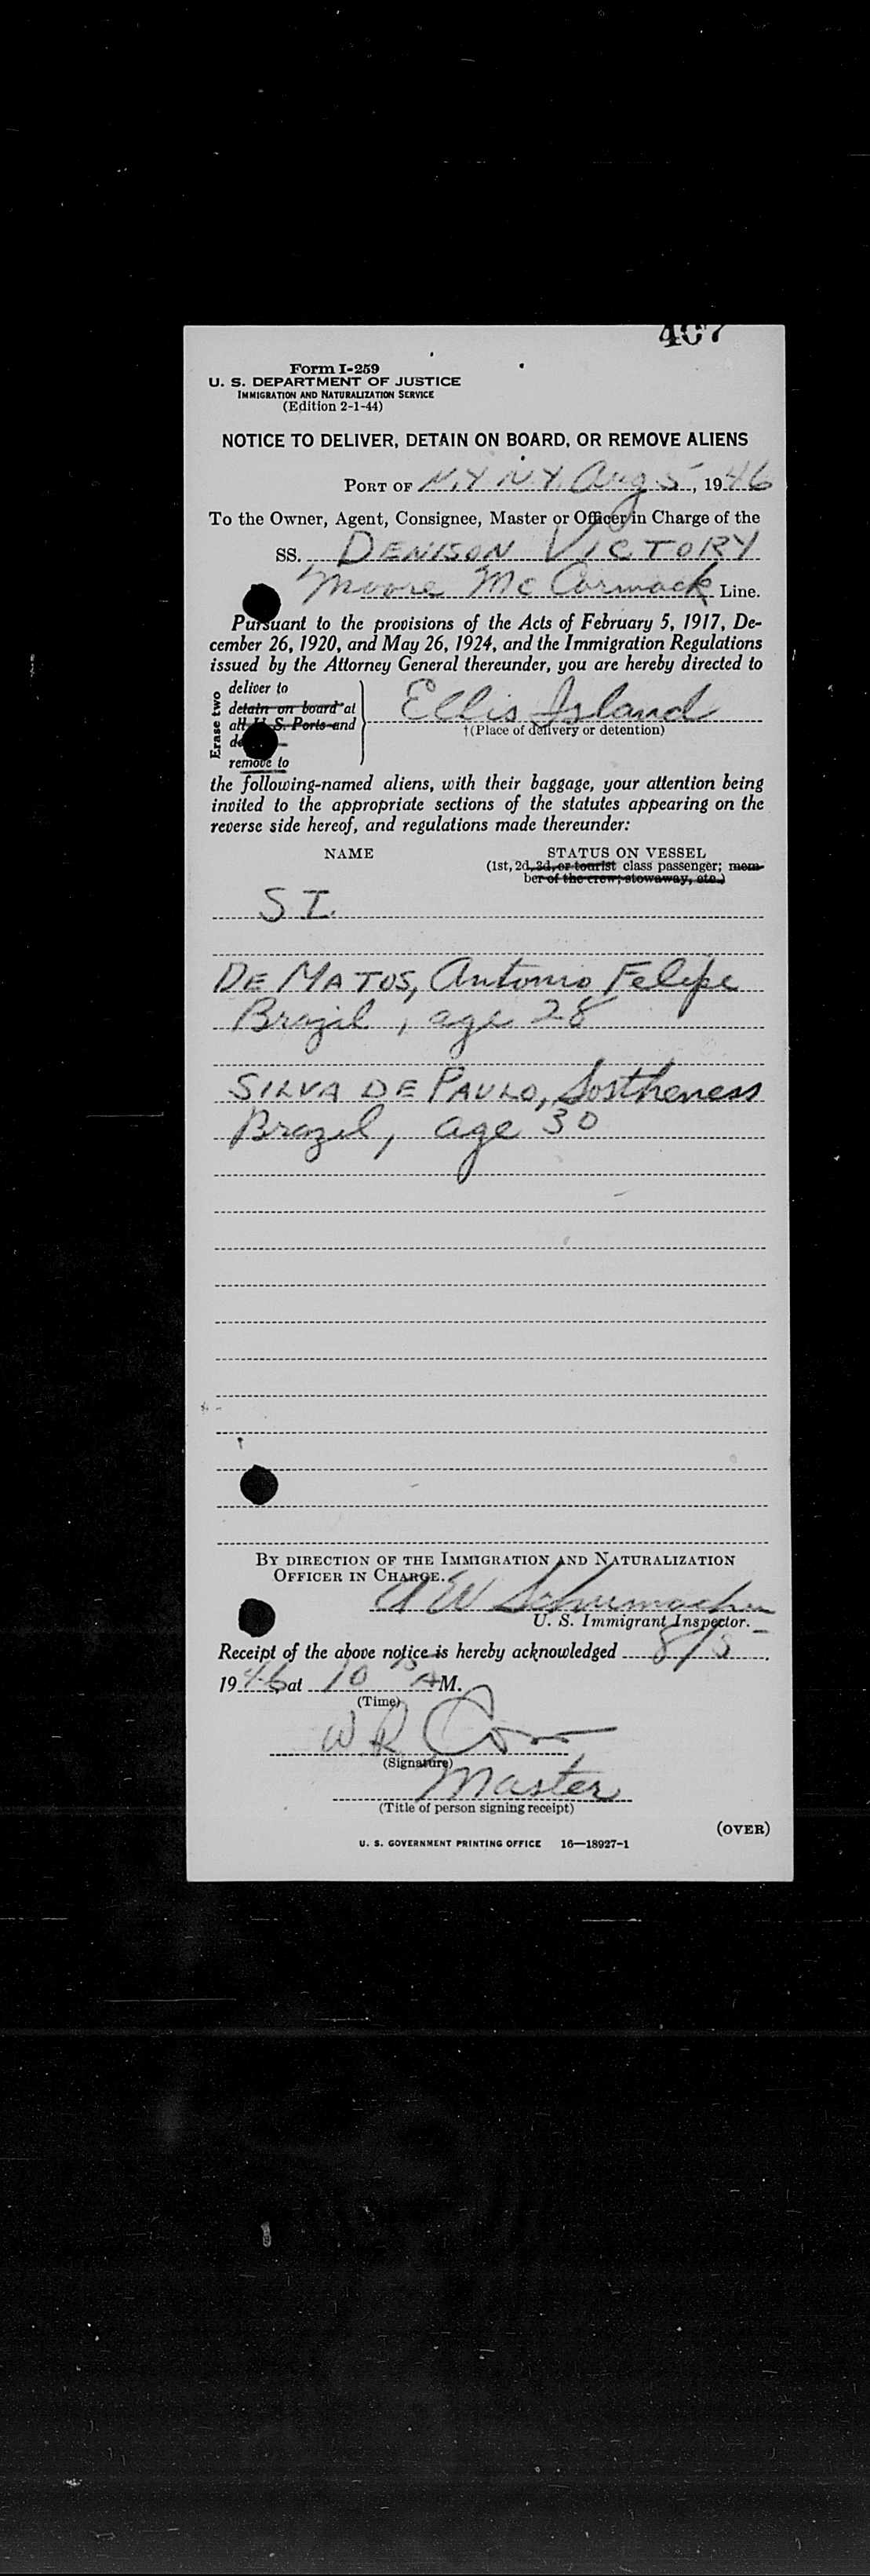 407
Form I-259
U. S. DEPARTMENT OF JUSTICE
IMMIGRATION AND NATURALIZATION SERVICE
(Edition 2-1-44)
NOTICE TO DELIVER, DETAIN ON BOARD, OR REMOVE ALIENS
PORT OF N.Y. N.Y. Aug 5, 1946
To the Owner, Agent, Consignee, Master or Officer in Charge of the
SS. DENISON VICTORY
Moore McCormack Line.
Pursuant to the provisions of the Acts of February 5, 1917, De-
cember 26, 1920, and May 26, 1924, and the Immigration Regulations
issued by the Attorney General thereunder, you are hereby directed to
Erase two
deliver to
detain on board at
all U. S. Ports and
remove to
Ellis Island
†(Place of delivery or detention)
the following-named aliens, with their baggage, your attention being
invited to the appropriate sections of the statutes appearing on the
reverse side hereof, and regulations made thereunder:
NAME STATUS ON VESSEL
(1st, 2d, 3d, or tourist class passenger; mem-
ber of the crew; stowaway, etc.)
S I.
DE MATOS, Antonio Felipe
Brazil, age 28
SILVA DE PAULO, Sostheness
Brazil, age 30
BY DIRECTION OF THE IMMIGRATION AND NATURALIZATION
OFFICER IN CHARGE.
A W Schumacher
U. S. Immigrant Inspector.
Receipt of the above notice is hereby acknowledged 8/5,
1946, at 10 A M.
(Time)
W R
(Signature)
Master
(Title of person signing receipt)
(OVER)
U. S. GOVERNMENT PRINTING OFFICE 16—18927-1